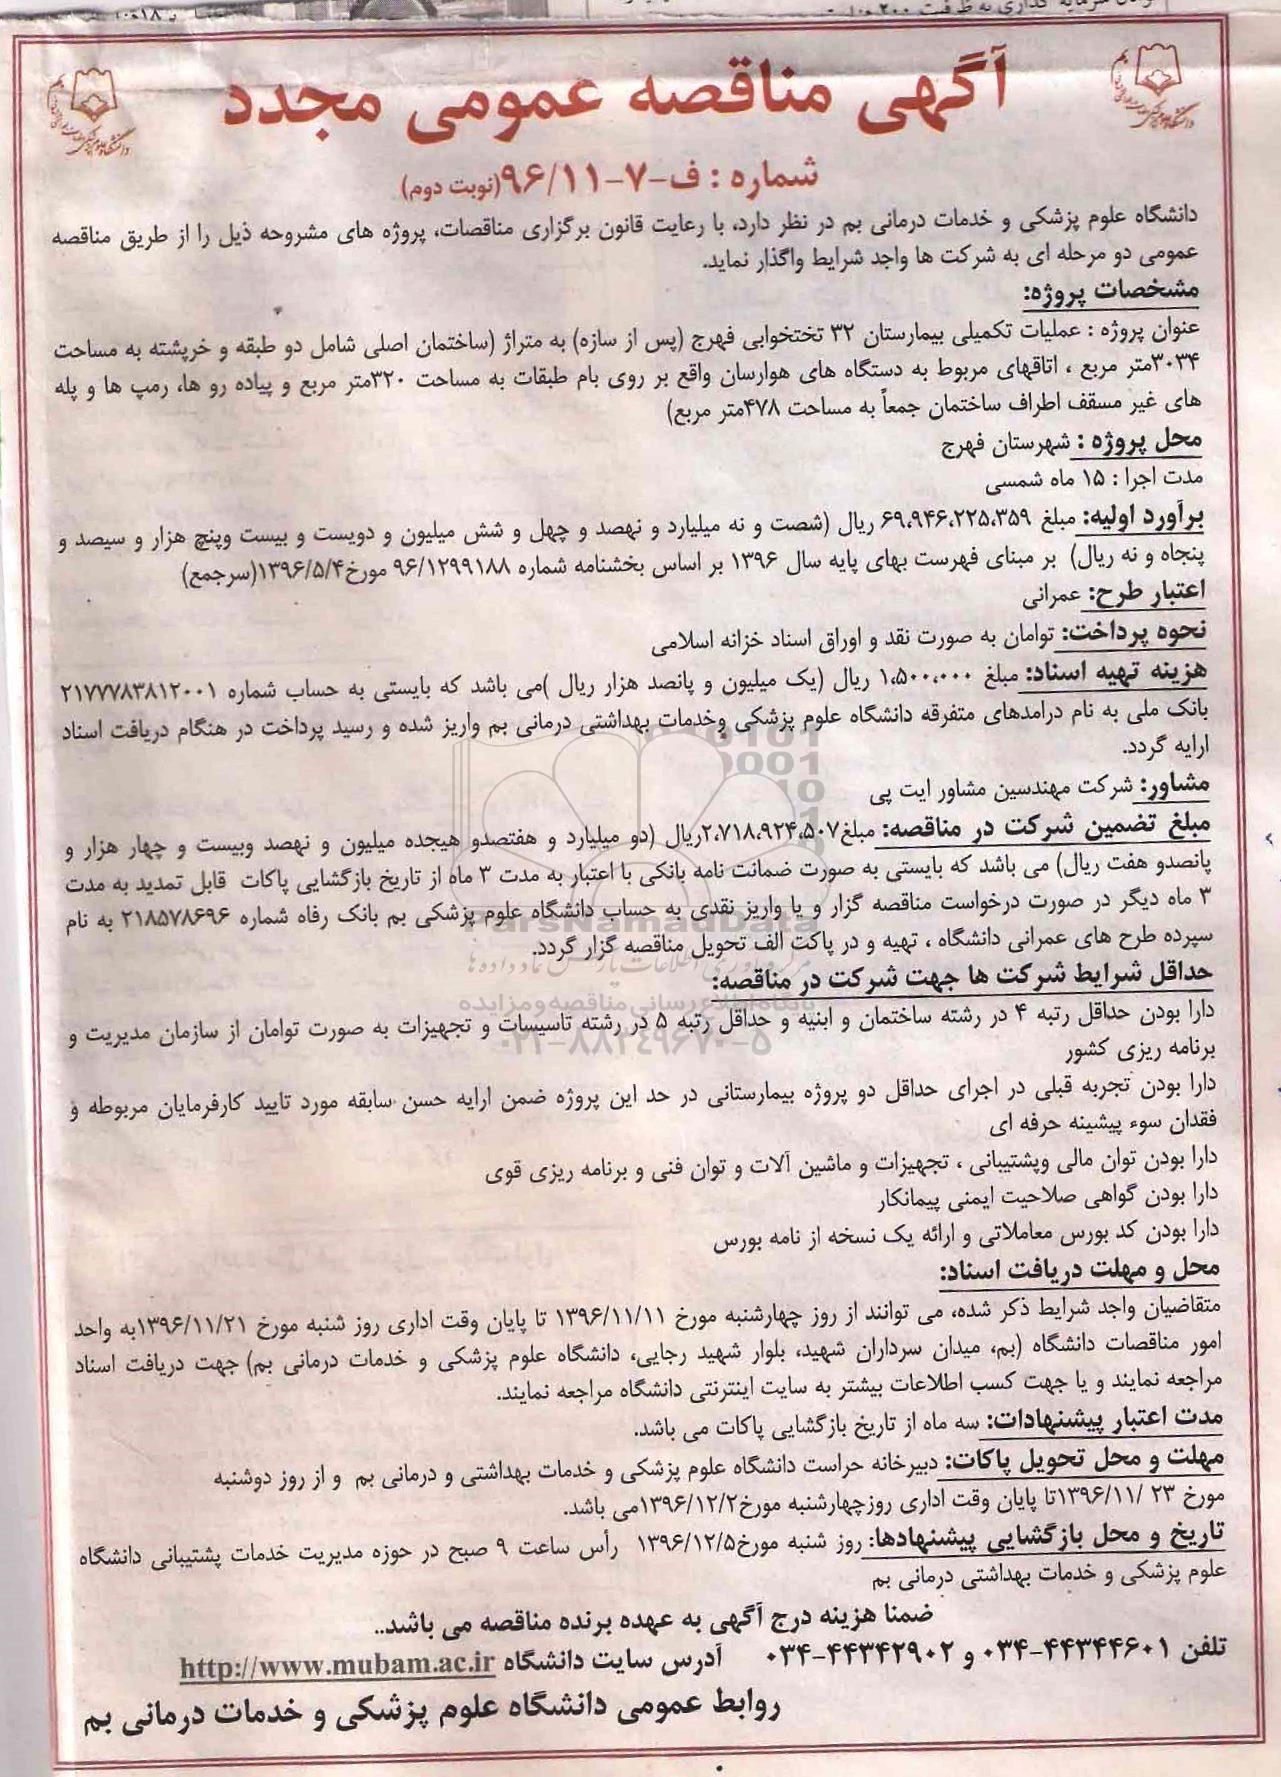 آگهی مناقصه عمومی مجدد
شماره : ف-۷-۹۶/۱۱(نوبت دوم)
دانشگاه علوم پزشکی و خدمات درمانی بم در نظر دارد، با رعایت قانون برگزاری مناقصات، پروژه های مشروحه ذیل را از طریق مناقصه
عمومی دو مرحله ای به شرکت ها واجد شرایط واگذار نماید.
مشخصات پروژه:
عنوان پروژه : عملیات تکمیلی بیمارستان ۳۲ تختخوابی فهرج (پس از سازه) به متراژ (ساختمان اصلی شامل دو طبقه و خرپشته به مساحت
۳۰۳۴متر مربع ، اتاقهای مربوط به دستگاه های هوارسان واقع بر روی بام طبقات به مساحت ۳۲۰متر مربع و پیاده رو ها، رمپ ها و پله
های غیر مسقف اطراف ساختمان جمعاً به مساحت ۴۷۸متر مربع)
محل پروژه : شهرستان فهرج
مدت اجرا : ۱۵ ماه شمسی
برآورد اولیه: مبلغ ۶۹،۹۴۶،۲۲۵،۳۵۹ ریال (شصت و نه میلیارد و نهصد و چهل و شش میلیون و دویست و بیست وپنچ هزار و سیصد و
پنجاه و نه ریال) بر مبنای فهرست بهای پایه سال ۱۳۹۶ بر اساس بخشنامه شماره ۹۶/۱۲۹۹۱۸۸ مورخ۱۳۹۶/۵/۴(سرجمع)
اعتبار طرح: عمرانی
نحوه پرداخت: توامان به صورت نقد و اوراق اسناد خزانه اسلامی
هزینه تهیه اسناد: مبلغ ۱،۵۰۰،۰۰۰ ریال (یک میلیون و پانصد هزار ریال )می باشد که بایستی به حساب شماره ۲۱۷۷۷۸۳۸۱۲۰۰۱
بانک ملی به نام درامدهای متفرقه دانشگاه علوم پزشکی وخدمات بهداشتی درمانی بم واریز شده و رسید پرداخت در هنگام دریافت اسناد
ارایه گردد.
مشاور: شرکت مهندسین مشاور ایت پی
مبلغ تضمین شرکت در مناقصه: مبلغ۲،۷۱۸،۹۲۴،۵۰۷ریال (دو میلیارد و هفتصدو هیجده میلیون و نهصد وبیست و چهار هزار و
پانصدو هفت ریال) می باشد که بایستی به صورت ضمانت نامه بانکی با اعتبار به مدت ۳ ماه از تاریخ بازگشایی پاکات قابل تمدید به مدت
۳ ماه دیگر در صورت درخواست مناقصه گزار و یا واریز نقدی به حساب دانشگاه علوم پزشکی بم بانک رفاه شماره ۲۱۸۵۷۸۶۹۶ به نام
سپرده طرح های عمرانی دانشگاه ، تهیه و در پاکت الف تحویل مناقصه گزار گردد.
حداقل شرایط شرکت ها جهت شرکت در مناقصه:
دارا بودن حداقل رتبه ۴ در رشته ساختمان و ابنیه و حداقل رتبه ۵ در رشته تاسیسات و تجهیزات به صورت توامان از سازمان مدیریت و
برنامه ریزی کشور
دارا بودن تجربه قبلی در اجرای حداقل دو پروژه بیمارستانی در حد این پروژه ضمن ارایه حسن سابقه مورد تایید کارفرمایان مربوطه و
فقدان سوء پیشینه حرفه ای
دارا بودن توان مالی وپشتیبانی ، تجهیزات و ماشین آلات و توان فنی و برنامه ریزی قوی
دارا بودن گواهی صلاحیت ایمنی پیمانکار
دارا بودن کد بورس معاملاتی و ارائه یک نسخه از نامه بورس
محل و مهلت دریافت اسناد:
متقاضیان واجد شرایط ذکر شده، می توانند از روز چهارشنبه مورخ ۱۳۹۶/۱۱/۱۱ تا پایان وقت اداری روز شنبه مورخ ۱۳۹۶/۱۱/۲۱به واحد
امور مناقصات دانشگاه (بم، میدان سرداران شهید، بلوار شهید رجایی، دانشگاه علوم پزشکی و خدمات درمانی بم) جهت دریافت اسناد
مراجعه نمایند و یا جهت کسب اطلاعات بیشتر به سایت اینترنتی دانشگاه مراجعه نمایند.
مدت اعتبار پیشنهادات: سه ماه از تاریخ بازگشایی پاکات می باشد.
مهلت و محل تحویل پاکات: دبیرخانه حراست دانشگاه علوم پزشکی و خدمات بهداشتی و درمانی بم و از روز دوشنبه
مورخ ۲۳ /۱۳۹۶/۱۱تا پایان وقت اداری روزچهارشنبه مورخ۱۳۹۶/۱۲/۲می باشد.
تاریخ و محل بازگشایی پیشنهادها: روز شنبه مورخ۱۳۹۶/۱۲/۵ رأس ساعت ۹ صبح در حوزه مدیریت خدمات پشتیبانی دانشگاه
علوم پزشکی و خدمات بهداشتی درمانی بم
ضمنا هزینه درج آگهی به عهده برنده مناقصه می باشد..
تلفن ۴۴۳۴۴۶۰۱-۰۳۴ و ۴۴۳۴۲۹۰۲-۰۳۴ آدرس سایت دانشگاه http://www.mubam.ac.ir
روابط عمومی دانشگاه علوم پزشکی و خدمات درمانی بم
ParsNamadData
پایگاه اطلاع رسانی مناقصه و مزایده
۰۲۱-۸۸۳۴۹۶۷۰-۵